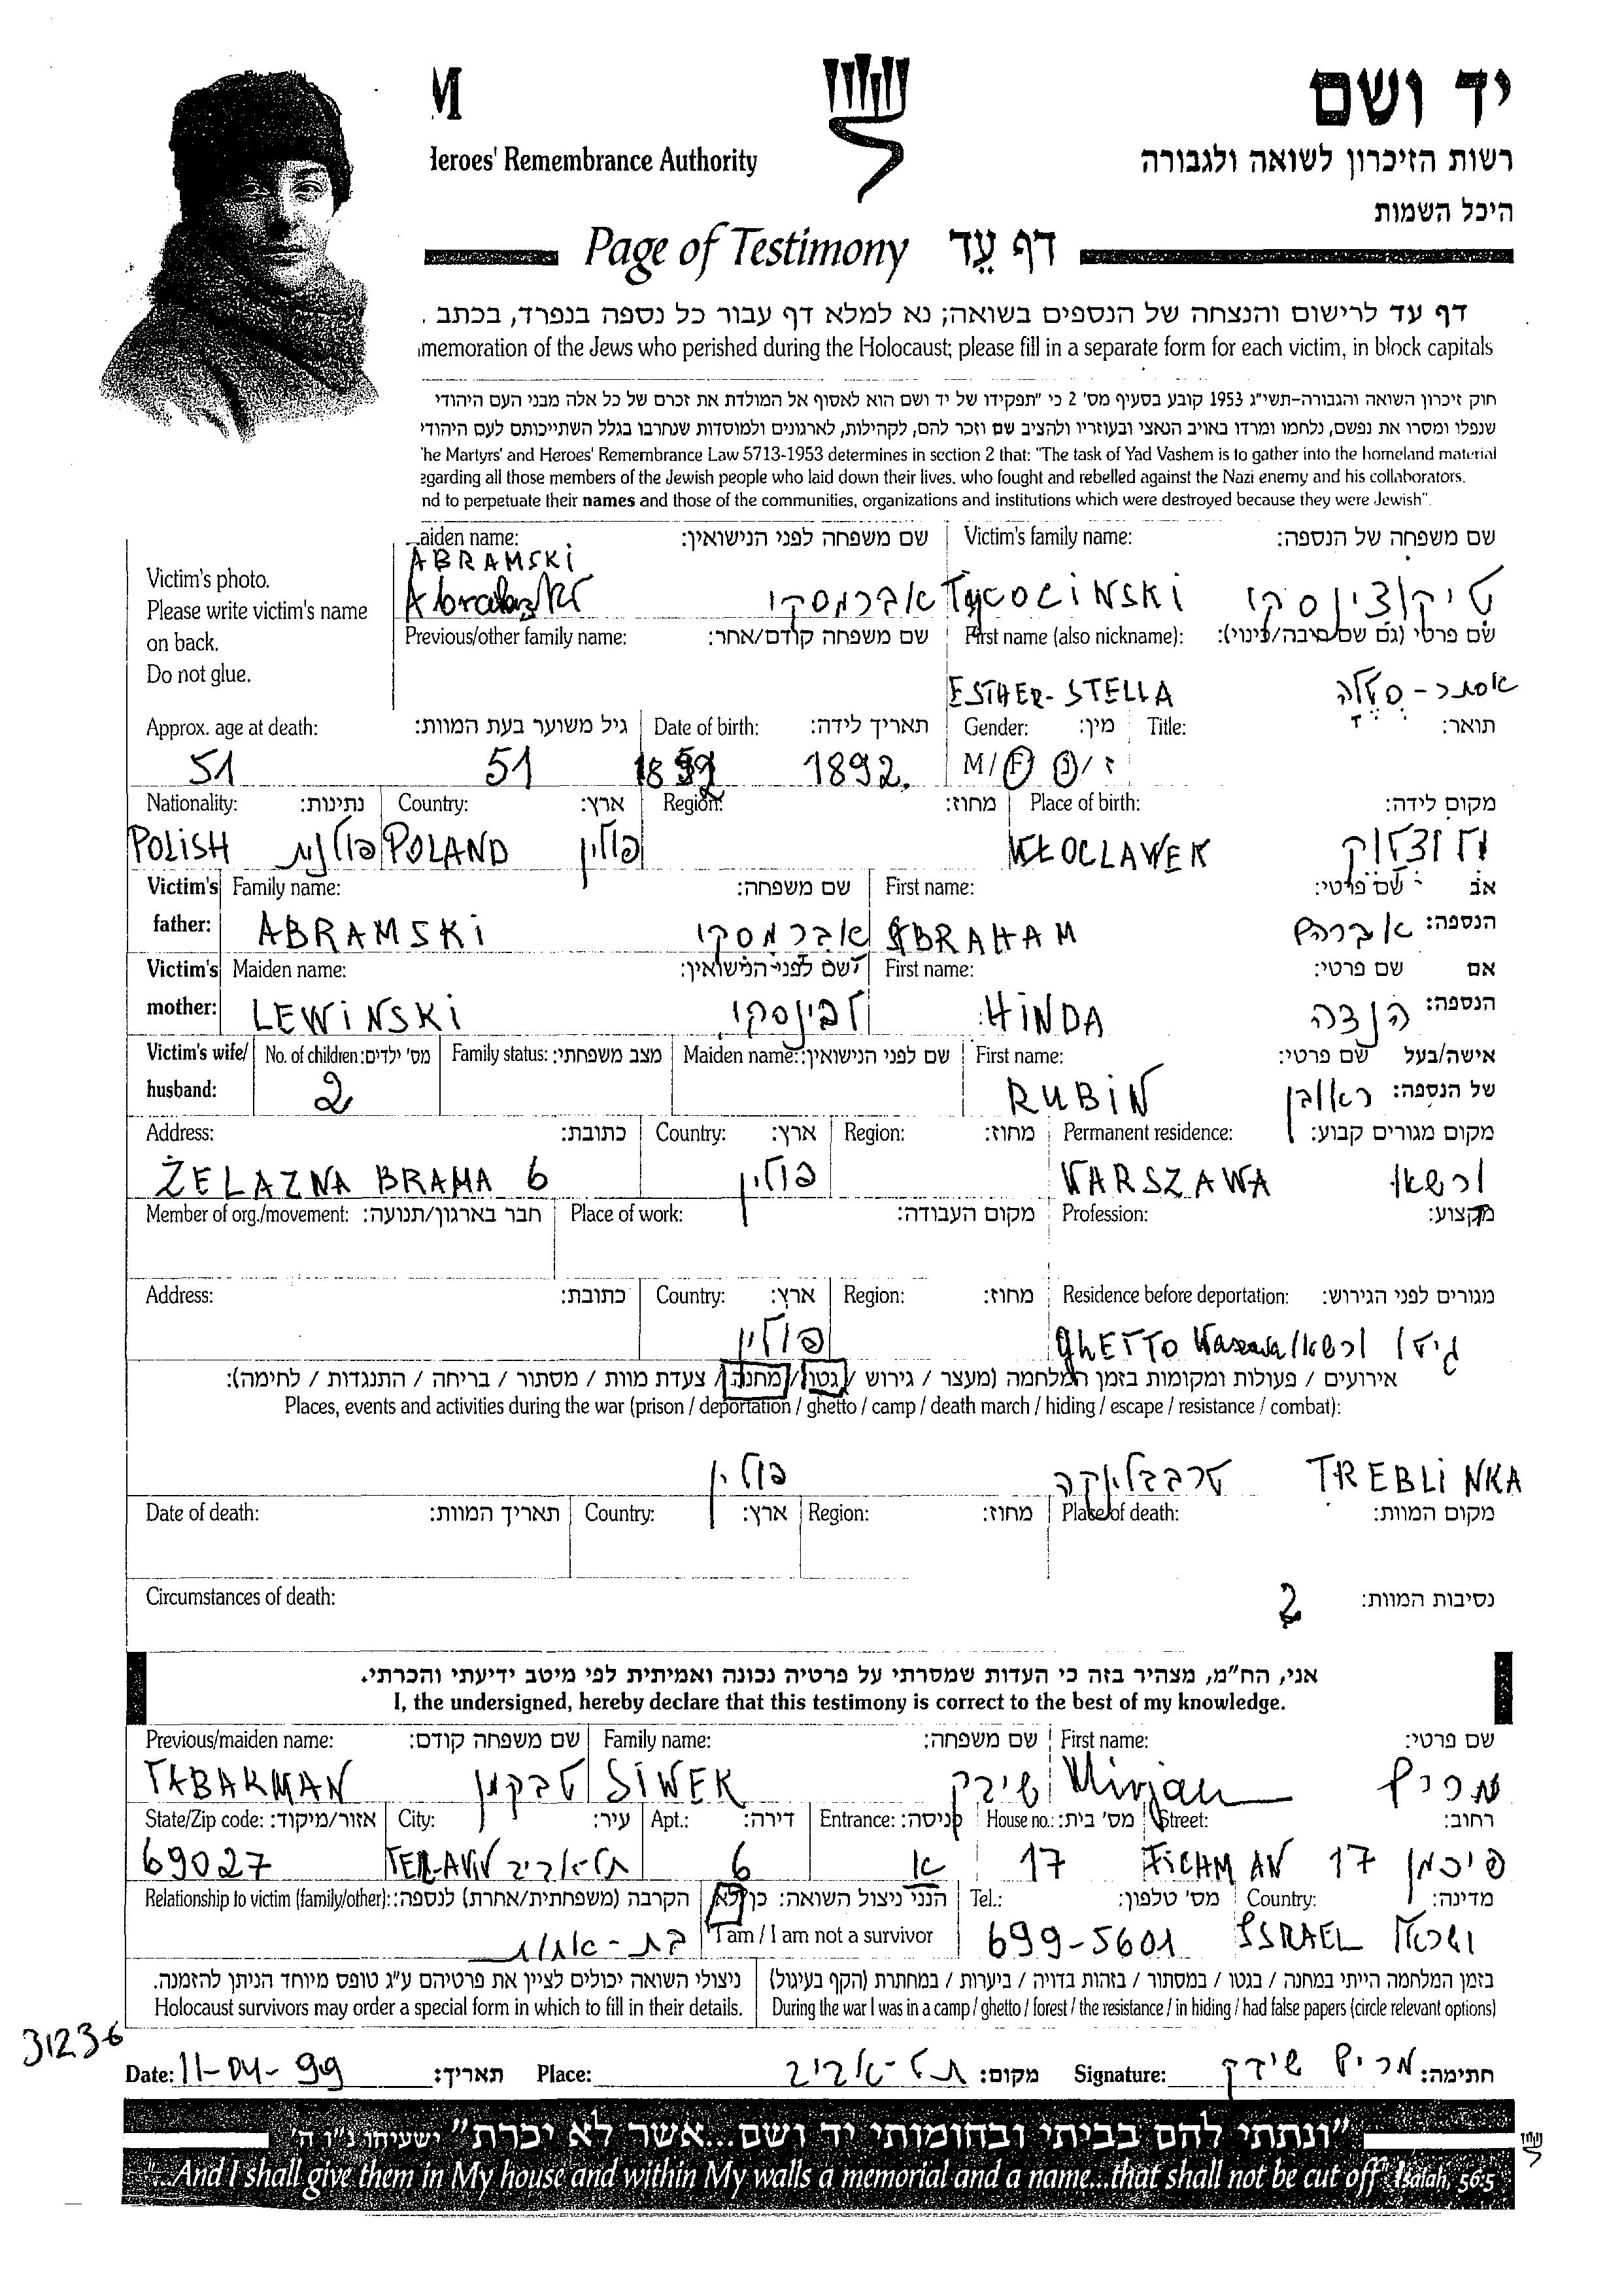 M
יד ושם
Heroes' Remembrance Authority
רשות הזיכרון לשואה ולגבורה
היכל השמות
Page of Testimony דף עֵד
דף עד לרישום והנצחה של הנספים בשואה; נא למלא דף עבור כל נספה בנפרד, בכתב .
memoration of the Jews who perished during the Holocaust; please fill in a separate form for each victim, in block capitals
חוק זיכרון השואה והגבורה-תשי"ג 1953 קובע בסעיף מס' 2 כי "תפקידו של יד ושם הוא לאסוף אל המולדת את זכרם של כל אלה מבני העם היהודי
שנפלו ומסרו את נפשם, נלחמו ומרדו באויב הנאצי ובעוזריו ולהציב שם וזכר להם, לקהילות, לארגונים ולמוסדות שנחרבו בגלל השתייכותם לעם היהודי
he Martyrs' and Heroes' Remembrance Law 5713-1953 determines in section 2 that: "The task of Yad Vashem is to gather into the homeland material
egarding all those members of the Jewish people who laid down their lives, who fought and rebelled against the Nazi enemy and his collaborators.
nd to perpetuate their names and those of the communities, organizations and institutions which were destroyed because they were Jewish".
Victim's photo.
Please write victim's name
on back.
Do not glue.
aiden name: שם משפחה לפני הנישואין: Victim's family name: שם משפחה של הנספה:
ABRAMSKI
אברמסקי TYCOCINSKI טיקוצינסקי
Previous/other family name: שם משפחה קודם/אחר: First name (also nickname): שם פרטי (גם שם חיבה/כינוי):
ESTHER-STELLA אסתר-סטלה
Approx. age at death: גיל משוער בעת המוות: Date of birth: תאריך לידה: Gender: מין: Title: תואר:
51 51 1892 1892. M/F נ/ז
Nationality: נתינות: Country: ארץ: Region: מחוז: Place of birth: מקום לידה:
POLISH פולנית POLAND פולין WŁOCLAWEK ולוצלוק
Victim's father: Family name: שם משפחה: First name: שם פרטי: אב הנספה:
ABRAMSKI אברמסקי ABRAHAM אברהם
Victim's mother: Maiden name: שם לפני הנישואין: First name: שם פרטי: אם הנספה:
LEWINSKI לבינסקי HINDA הנדה
Victim's wife/ husband: No. of children: מס' ילדים: Family status: מצב משפחתי: Maiden name: שם לפני הנישואין: First name: שם פרטי: אישה/בעל של הנספה:
2 RUBIN ראובן
Address: כתובת: Country: ארץ: Region: מחוז: Permanent residence: מקום מגורים קבוע:
ŻELAZNA BRAMA 6 פולין WARSZAWA ורשא
Member of org./movement: חבר בארגון/תנועה: Place of work: מקום העבודה: Profession: מקצוע:
Address: כתובת: Country: ארץ: Region: מחוז: Residence before deportation: מגורים לפני הגירוש:
פולין GHETTO Warszawa/ורשא גיטו
אירועים / פעולות ומקומות בזמן המלחמה (מעצר / גירוש / גטו / מחנה / צעדת מוות / מסתור / בריחה / התנגדות / לחימה):
Places, events and activities during the war (prison / deportation / ghetto / camp / death march / hiding / escape / resistance / combat):
פולין טרבלינקה TREBLINKA
Date of death: תאריך המוות: Country: ארץ: Region: מחוז: Place of death: מקום המוות:
Circumstances of death: ? נסיבות המוות:
אני, הח"מ, מצהיר בזה כי העדות שמסרתי על פרטיה נכונה ואמיתית לפי מיטב ידיעתי והכרתי.
I, the undersigned, hereby declare that this testimony is correct to the best of my knowledge.
Previous/maiden name: שם משפחה קודם: Family name: שם משפחה: First name: שם פרטי:
TABAKMAN טבקמן SIWEK שיבק Mirjam מרים
State/Zip code: אזור/מיקוד: City: עיר: Apt.: דירה: Entrance: כניסה: House no.: מס' בית: Street: רחוב:
69027 TEL-AVIV תל-אביב 6 א 17 FICHMAN 17 פיכמן
Relationship to victim (family/other): הקרבה (משפחתית/אחרת) לנספה: הנני ניצול השואה: כן/לא Tel.: מס' טלפון: Country: מדינה:
I am / I am not a survivor
בת-אחות 699-5601 ISRAEL ישראל
ניצולי השואה יכולים לציין את פרטיהם ע"ג טופס מיוחד הניתן להזמנה. בזמן המלחמה הייתי במחנה / בגטו / במסתור / בזהות בדויה / ביערות / במחתרת (הקף בעיגול)
Holocaust survivors may order a special form in which to fill in their details. During the war I was in a camp / ghetto / forest / the resistance / in hiding / had false papers (circle relevant options)
31236
Date: 11-04-99 תאריך: Place: תל-אביב מקום: Signature: מרים שיבק חתימה:
"ונתתי להם בביתי ובחומותי יד ושם...אשר לא יכרת" ישעיהו נ"ו ה'
"...And I shall give them in My house and within My walls a memorial and a name...that shall not be cut off" Isaiah, 56:5